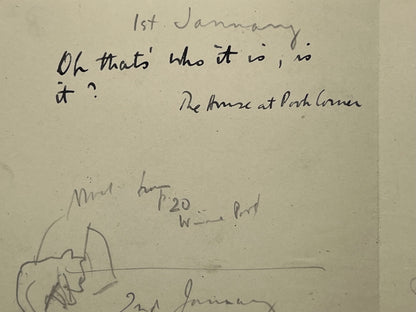 1st January
Oh that's who it is, is
it?
The House at Pooh Corner
from
P 20
Winnie Pooh
2nd January